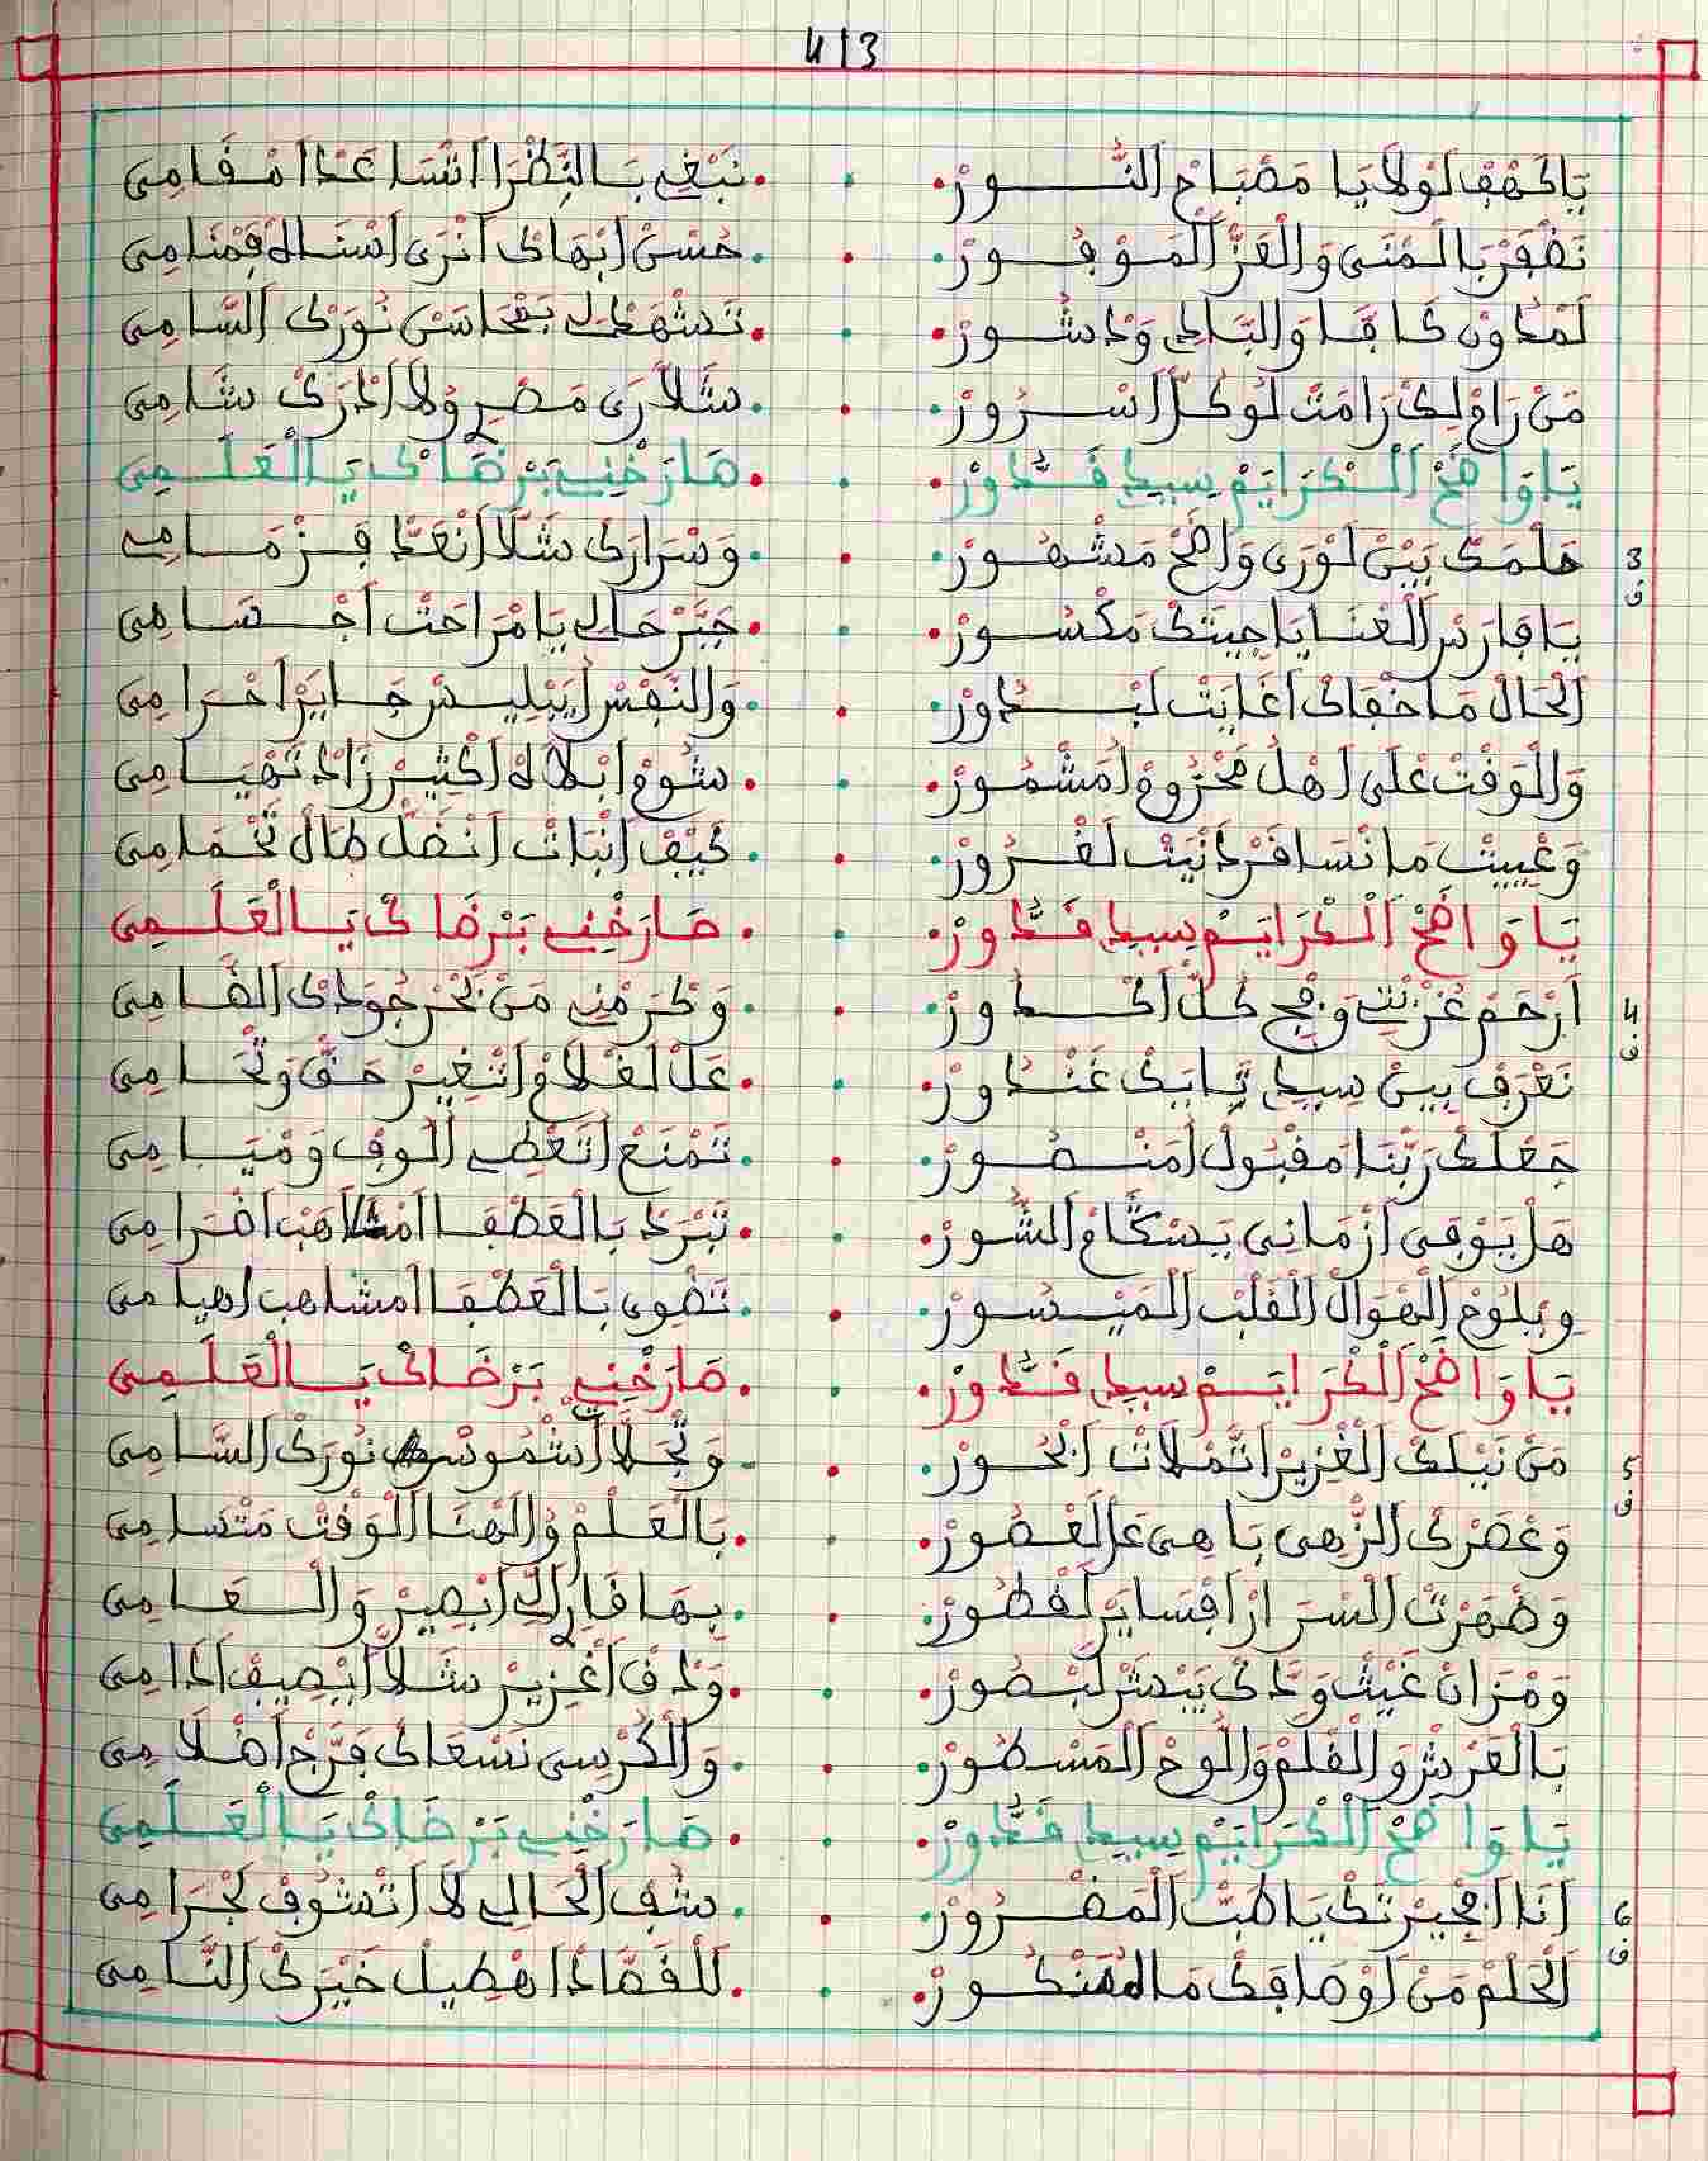 413
يَا كَهْفْ لَوْلَايَا مَصْبَاحْ اَلنُّورْ . نَبْغِي بَالنَّظْرَا اَتْسَاعَدْ اَمْقَامِي
نَضْفَرْ بَالْمْنَى وَالْعَزّْ اَلْمَوْفُورْ . حُسْنْ اَبْهَاكْ اَنْرَى
لَمْدُونْ كَافَّا وَالْبَادِي وَدْشُورْ . تَشْهَدْ لِي بَمْحَاسَنْ نُورَكْ اَلسَّامِي
مَنْ رَامْ لِكْ رَامَتْ لُو كُلّْ اَسْرُورْ . شَلَّا رَى مَصْرْ وُلَا اَدْرَكْ شَامِي
يَا وَاضَحْ اَلْكْرَايَمْ سِيدِي قَدُّورْ . صَارَخْنِي بَرْضَاكْ يَا الْعَلَمِي
3
ف
حَلْمَكْ بَيْنْ لَوْرَى وَاضَحْ مَشْهُورْ . وَسْرَارَكْ شَلَّا اَنْعَدّْ فَزْمَامِي
يَا فَارَسْ اَلْغْنَا يَا جِيتَكْ مَكْسُورْ . جَبَّرْ حَالِي يَا مْرَاحَتْ اَجْسَامِي
اَلْحَالْ مَا خْفَاكْ اَغَايَتْ لَبْدُورْ . وَالنَّفْسْ
وَالْوَقْتْ عْلَى اَهْلْ مَخْزُومْ اَمْشُمُورْ . شُومْ اَبْلَاهْ اَكْثِيرْ زَادْ تَهْيَامِي
وَعْيِيتْ مَا نْسَافَرْ لَغْرُورْ . كَيْفْ اَنْبَاتْ اَنْضَلّْ طَالْ تَخْمَامِي
يَا وَاضَحْ اَلْكْرَايَمْ سِيدِي قَدُّورْ . صَارَخْنِي بَرْضَاكْ يَا الْعَلَمِي
4
ف
اَرْحَمْ غُرْبْتِي وَمْحِي كُلّْ اَكْدُورْ . وَكْرَمْنِي مَنْ بَحْرْ جُودَكْ اَلطَّامِي
نَعْرَفْ بِينْ سِيدِي تَابَكْ غَنْدُورْ . عَلْ لَعْلَامْ وَاتْغِيرْ حَقّْ وَتْحَامِي
جَعْلَكْ رَبَّنَا مَقْبُولْ اَمَنْصُورْ . تَمْنَعْ اَتَعْطِي اَلُوفْ وَمْيَامِي
هَلْ يَوْفَى اَزْمَانِي يَسْكَامْ اَلشُّورْ . تَبْرَدْ بَالْعَطْفَا اَمْشَاهَبْ اَضْرَامِي
وِيلُوحْ اَلْهْوَالْ اَلْقَلْبْ اَلْمَيْسُورْ . تَضْوِي بَالْعَطْفَا اَمْشَاهَبْ اَهْيَامِي
يَا وَاضَحْ اَلْكْرَايَمْ سِيدِي قَدُّورْ . صَارَخْنِي بَرْضَاكْ يَا الْعَلَمِي
5
ف
مَنْ نَيْلَكْ اَلْغْزِيرْ اَتَّمْلَاتْ اَبْحُورْ . وَتْجَلَّاتْ اَشْمُوسْ نُورَكْ اَلسَّامِي
وَعْصَرْكْ الزّْهِي بَاهِي عَالْعْصُورْ . بَالْعَلْمْ وُالْهْنَا اَلْوَقْتْ مَتْسَامِي
وَضْهَرْتْ اَلْسْرَارْ اَفْسَايَرْ لَقْطُورْ . بِهَا قَارَّكْ اَبْصِيرْ وَالْعَامِي
وَمْزَانْ غَيْثْ وَدَّكْ يَبْشَرْ لَبْصُورْ . وَدْفَاقْ اَغْزِيرْ شَلَّا اَيْصِيفْ اَدَامِي
بَالْعَرْشْ وَالْقْلَمْ وَاللُّوحْ اَلْمَسْطُورْ . وَالْكُرْسِي نَسْعَاكْ فَرَّجْ اَضْلَامِي
يَا وَاضَحْ اَلْكْرَايَمْ سِيدِي قَدُّورْ . صَارَخْنِي بَرْضَاكْ يَا الْعَلَمِي
6
ف
اَنَا اَمْجِيرْتَكْ يَا طَبّْ اَلْمَضْرُورْ . شُفْ اَلْحَالِي لَا اَتْشُوفْ لَجْرَامِي
اَلْحَلْمْ مَنْ اَوْصَافَكْ مَا . لَلْقَصَّادْ اَهْطِيلْ خَيْرَكْ اَلنَّامِي